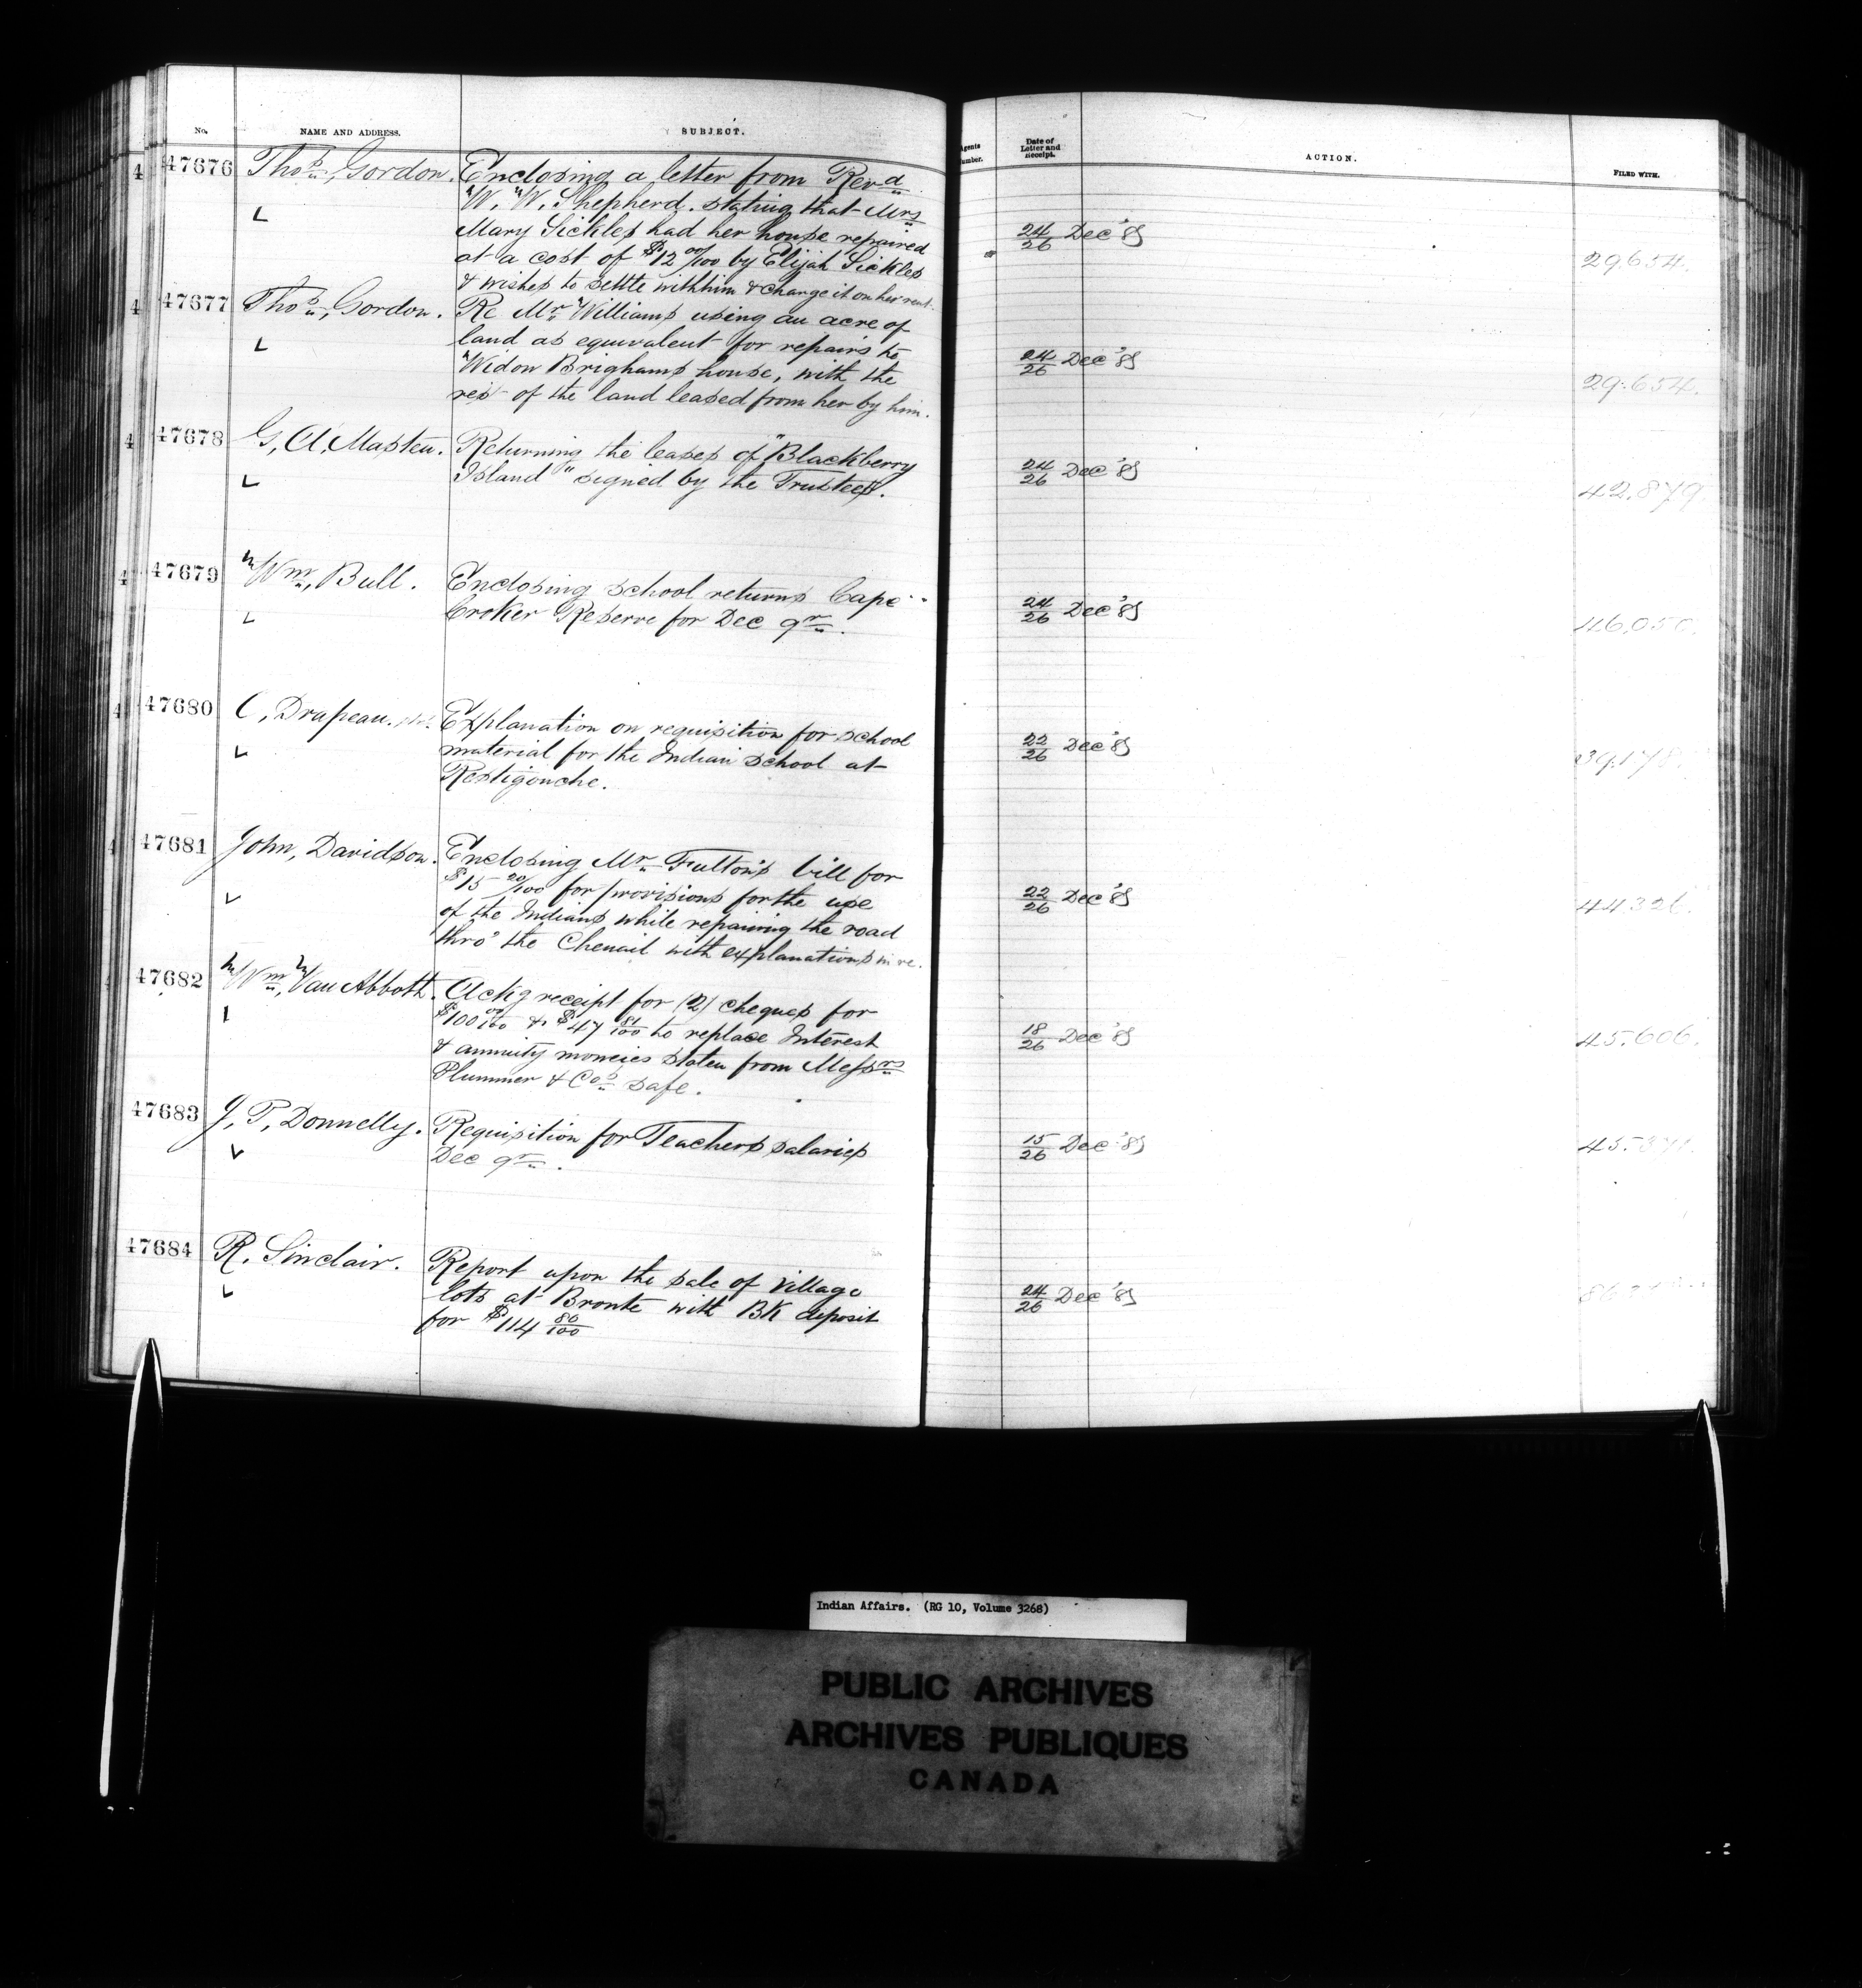 No.
NAME AND ADDRESS.
SUBJECT.
Agents
Number.
Date of
Letter and
Receipt.
ACTION.
FILED WITH.
47676
Thos, Gordon.
Enclosing a letter from Revd
W. W. Shepherd. stating that Mrs
Mary Sickles had her house repaired
at a cost of $12 00/100 by Elijah Sickles
& wishes to settle with him & charge it on her rent.
24/26 Dec '85
29.654.
47677
Thos, Gordon.
Re Mr Williams using an acre of
land as equivalent for repairs to
Widow Brighams house, with the
res of the land leased from her by him.
24/26 Dec '85
29.654.
47678
G, A, Masten.
Returning the leases of "Blackberry
Island" signed by the Trustees.
24/26 Dec '85
42.879.
47679
Wm, Bull.
Enclosing school returns Cape
Croker Reserve for Dec qr.
24/26 Dec '85
46.050.
47680
C, Drapeau.
Explanation on requisition for school
material for the Indian school at
Restigouche.
22/26 Dec '85
47681
John, Davidson.
Enclosing Mr Fulton's bill for
$15 20/100 for provisions for the use
of the Indians while repairing the road
thro' the Chenail with explanations in re.
22/26 Dec '85
44326.
47682
Wm, Van Abbott.
Ackg receipt for (2) cheques for
$100 00/100 & $47 81/100 to replace Interest
& annuity moneies stolen from Messrs
Plummer & Cos safe.
18/26 Dec '85
45.606.
47683
J, P, Donnelly.
Requisition for Teachers salaries
Dec qr.
15/26 Dec '85
47684
R. Sinclair.
Report upon the sale of village
lots at Bronte with BK deposit
for $114 80/100
24/26 Dec '85
Indian Affairs. (RG 10, Volume 3268)
PUBLIC ARCHIVES
ARCHIVES PUBLIQUES
CANADA